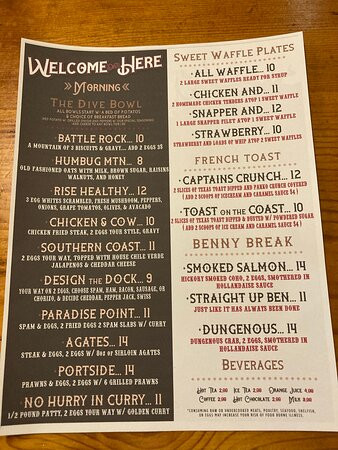 Welcome on Here
» Morning «
The Dive Bowl
All bowls start w/ a bed of potatoes
& choice of breakfast bread
Battle Rock... 10
A mountain of 3 biscuits & gravy... Add 2 eggs 3$
Humbug Mtn... 8
Old fashioned oats with milk, brown sugar, raisins,
walnuts, and honey
Rise Healthy... 12
3 egg whites scrambled, fresh mushroom, peppers,
onions, grape tomatoes, olives, & avocado
Chicken & Cow... 10
Chicken fried steak, 2 eggs your style, gravy
Southern Coast... 11
2 eggs your way, topped with house chile verde
jalapenos & cheddar cheese
Design the Dock... 9
Your way on 2 eggs, choose spam, ham, bacon, sausage, or
chorizo, & decide cheddar, pepper jack, swiss
Paradise Point... 11
Spam & eggs, 2 fried eggs 2 spam slabs w/ curry
Agates... 14
Steak & eggs, 2 eggs w/ 8oz of sirloin agates
Portside... 14
Prawns & eggs, 2 eggs w/ 6 grilled prawns
No Hurry in Curry... 11
1/2 pound patty, 2 eggs your way w/ golden curry
Sweet Waffle Plates
All Waffle... 10
2 large sweet waffles ready for syrup
Chicken and... 11
2 homemade chicken tenders atop 1 sweet waffle
Snapper and... 12
1 large snapper filet atop 1 sweet waffle
Strawberry... 10
Strawberry and loads of whip atop 2 sweet waffles
French Toast
Captains Crunch... 12
2 slices of Texas toast dipped and panko crunch covered
( add 2 scoops of icecream and caramel sauce 5$ )
Toast on the Coast... 10
2 slices of Texas toast dipped & dusted w/ powdered sugar
( add 2 scoops of ice cream and caramel sauce 5$ )
Benny Break
Smoked Salmon... 14
Hickory smoked coho, 2 eggs, smothered in
hollandaise sauce
Straight Up Ben... 11
Just like it has always been done
Dungenous... 14
Dungenous crab, 2 eggs, smothered in
hollandaise sauce
Beverages
Hot Tea 2.00 Ice Tea 2.00 Orange Juice 4.00
Coffee 2.00 Hot Chocolate 2.00 Milk 3.00
*Consuming raw or undercooked meats, poultry, seafood, shellfish,
or eggs may increase your risk of food borne illness.